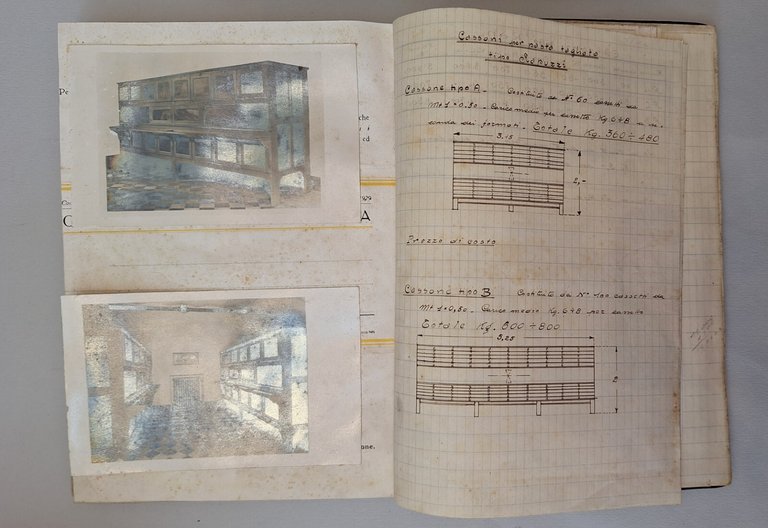 Pe
che
i
ed
Ca
929
A
one.
Cassoni per pasta tagliata
tipo
Cassone tipo A - Costituito da N° 60 cassetti da
Mt 1×0,50 - Carico medio per cassetto Kg 6÷8 a se-
conda dei formati. - Totale Kg. 360÷480
3,15
2,-
Prezzo di costo
Cassone tipo B Costituito da N° 100 cassetti da
Mt 1×0,50 - Carico medio Kg. 6÷8 per cassetto
Totale Kg. 600÷800
5,25
2